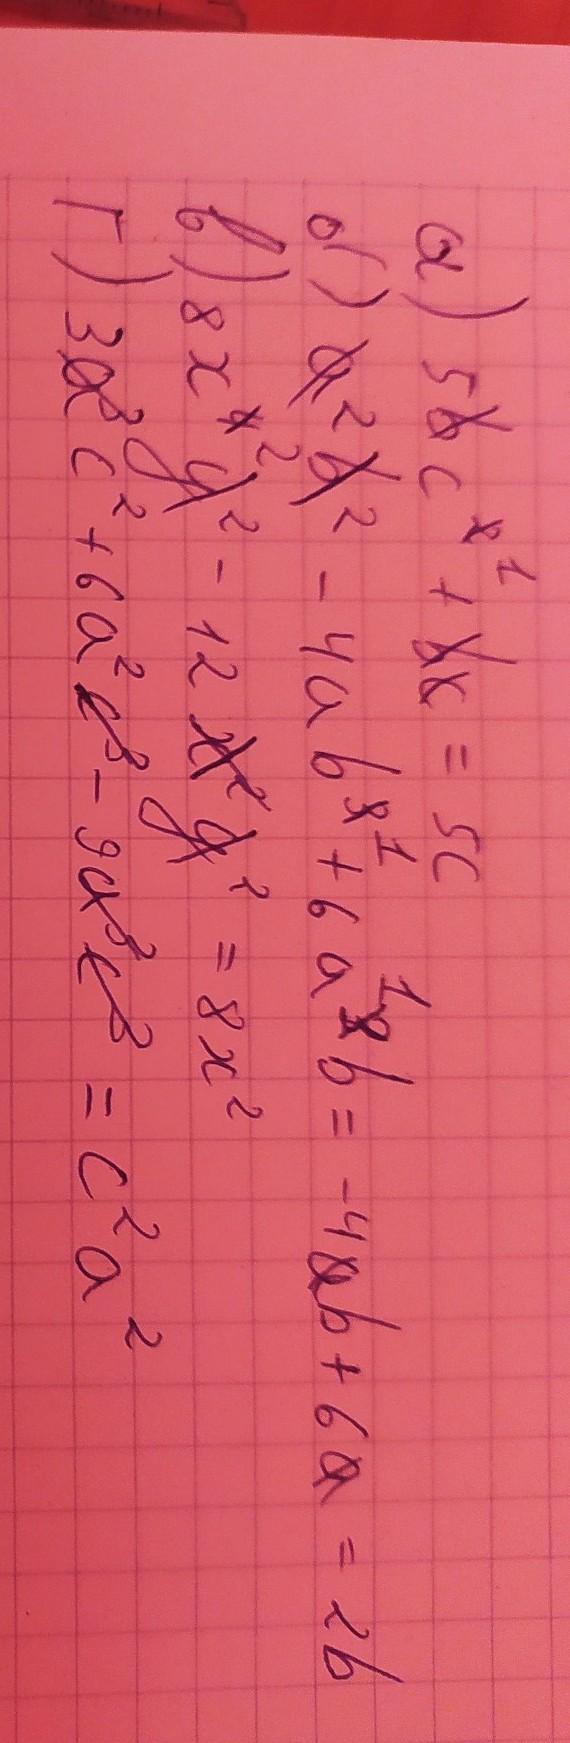 а) 5bc² ¹ + bx = 5c
б) a²b² - 4ab² ¹ + 6a² ¹b = -4ab + 6a = 2b
в) 8x⁴ ²y² - 12x²y² = 8x²
г) 3a³c² + 6a²c³ - 9a³c³ = c²a²